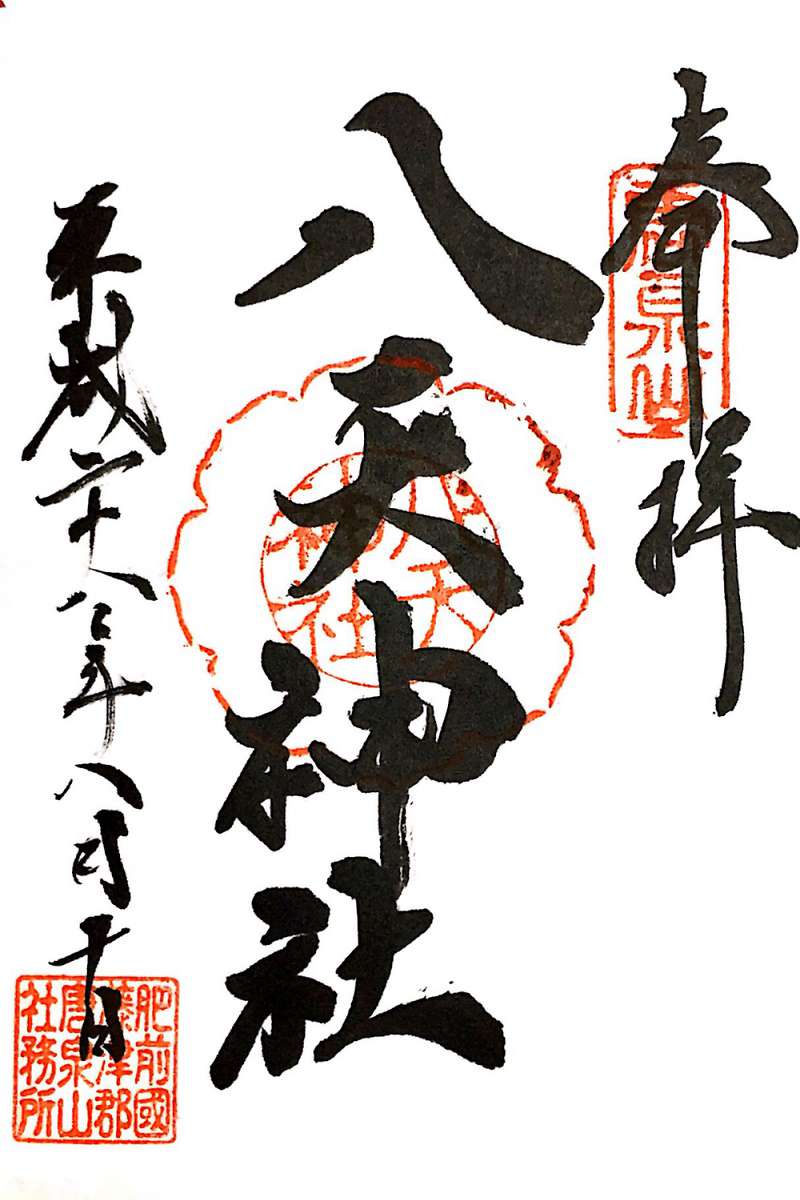 奉拝
唐泉山
八天神社
八天
神社
平成二十八年八月十日
肥前國
藤津郡
唐泉山
社務所